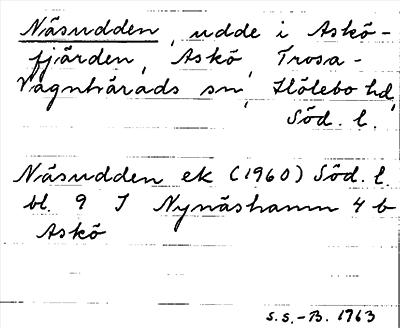 Näsudden, udde i Askö-
fjärden, Askö, Trosa-
Vagnhärads sn, Hölebo hd,
Söd. l.
Näsudden ek (1960) Söd. l.
bl. 9 I Nynäshamn 4 b
Askö
S.S.-B. 1963